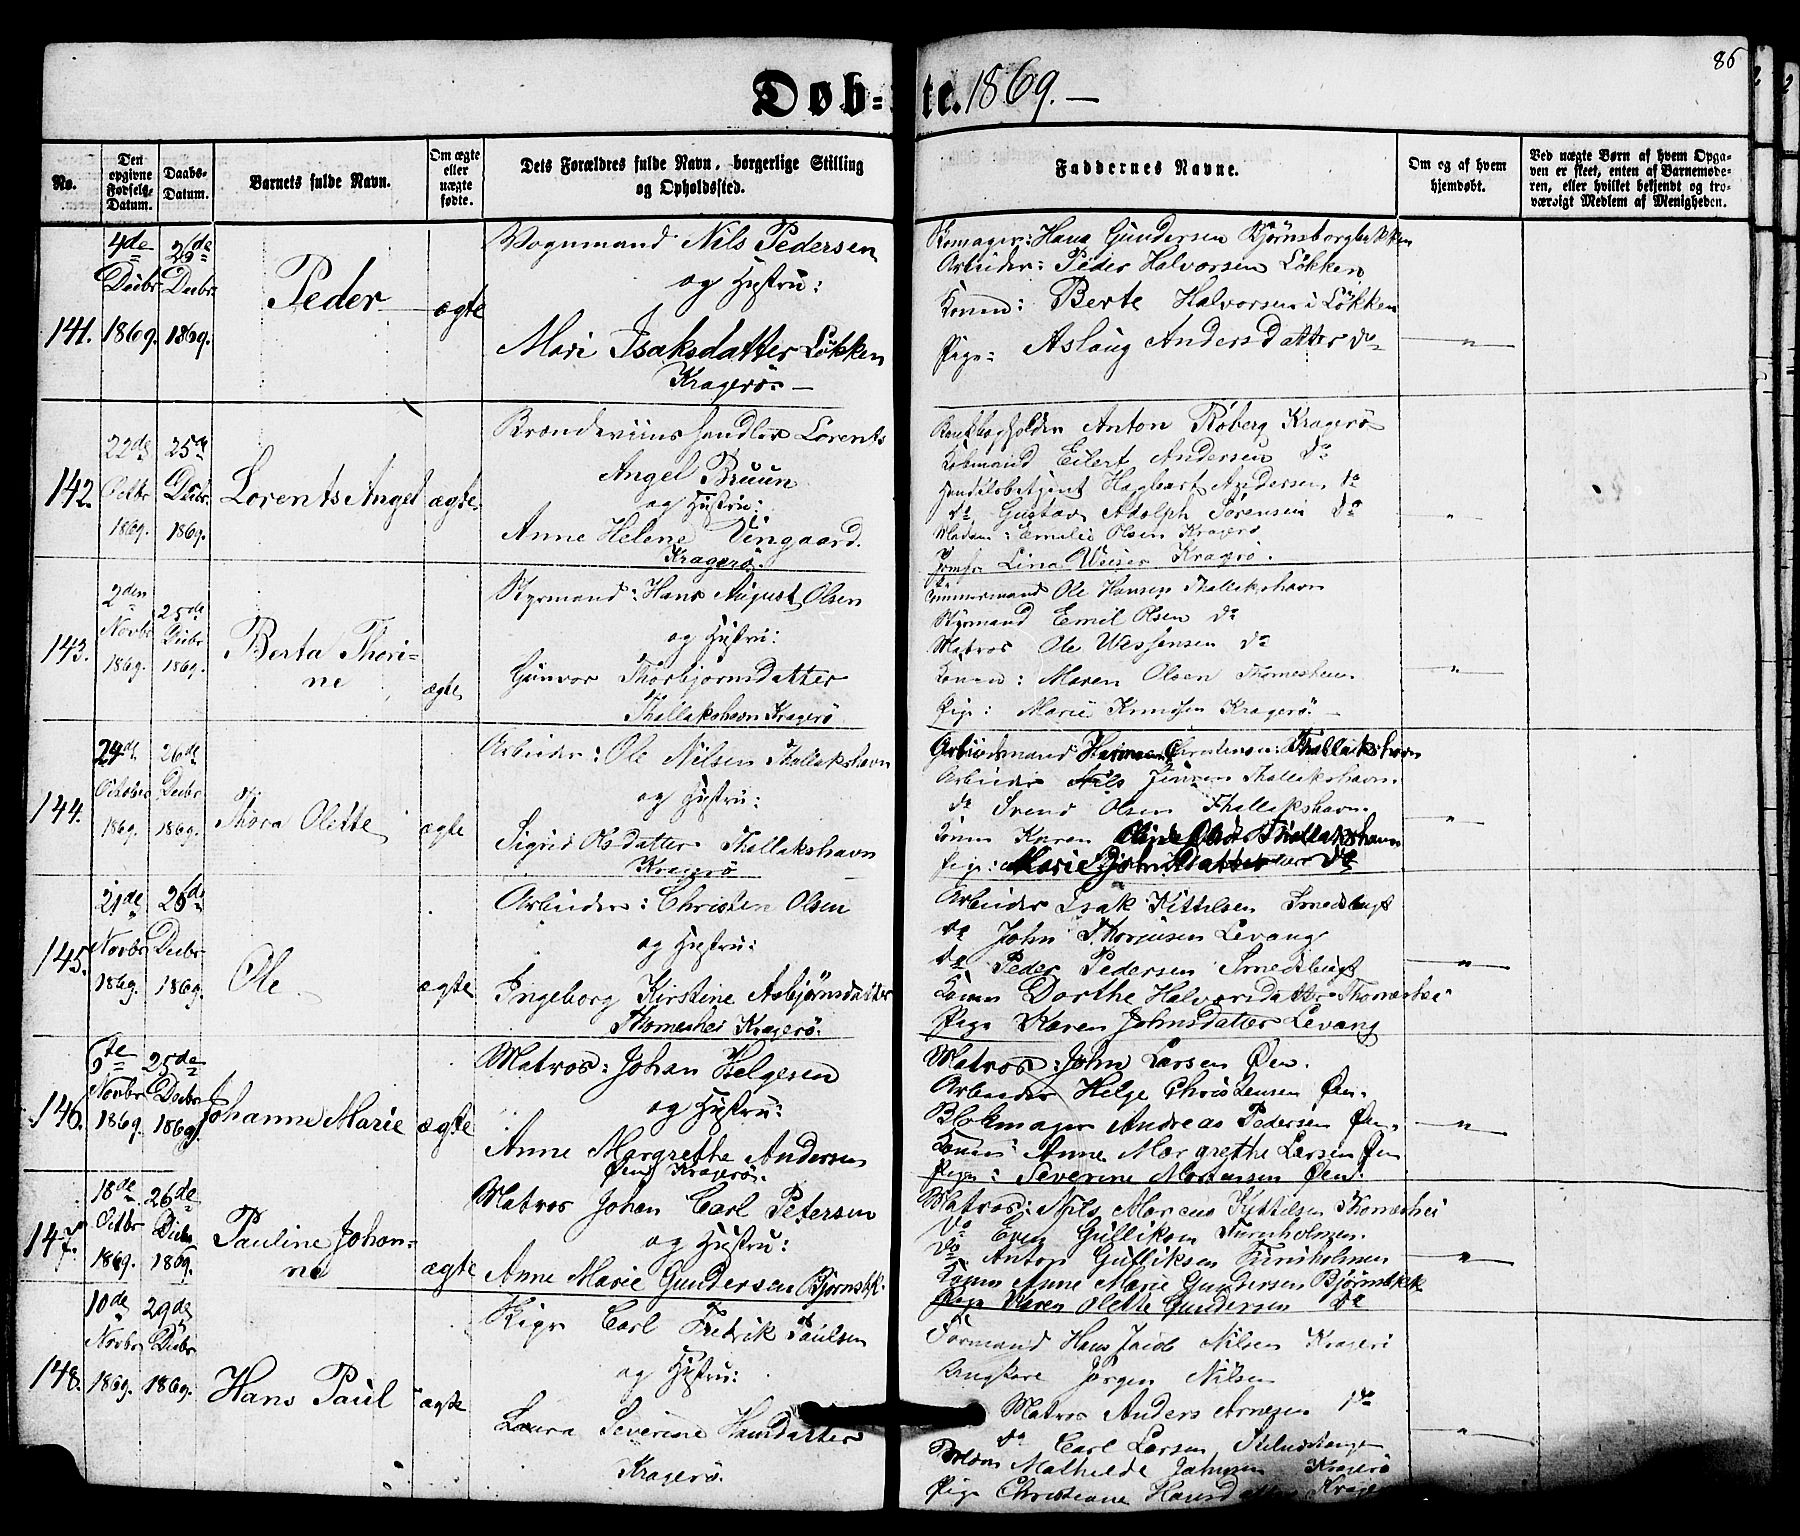 86
Døb-te. 1869.—
No.
Den opgivne Fødsels-Datum.
Daabs-Datum.
Barnets fulde Navn.
Om ægte eller uægte fødte.
Dets Forældres fulde Navn, borgerlige Stilling og Opholdssted.
Faddernes Navne.
Om og af hvem hjemdøbt.
Ved uægte Børn af hvem Opgaven er skeet, enten af Barnemoderen, eller hvilket bekjendt og troværdigt Medlem af Menigheden.
141.
4de Decbr 1869.
26de Decbr 1869.
Peder
ægte
Vognmand Nils Pedersen
og Hustru:
Mari Isaksdatter Løkken
Kragerø —
Hans Gundersen Bjørnsborgbakken
Arbeider: Peder Halvorsen Løkken
Konen: Berte Halvorsen i Løkken
Pige: Aslaug Andersdatter do
"
142.
22de Octbr 1869.
25de Decbr 1869.
Lorents Angel
ægte
Brændeviinshandler Lorents
Angel Bruun
og Hustru:
Anne Helene Vengaard.
Kragerø.
Anton Roberg Kragerø
Kjøbmand Eilert Andersen do
Hagbart Andersen do
do Gustav Adolph Sørensen do
Madam: Emelie Olsen Kragerø
Jomfr Lina Weiser Kragerø.
"
143.
2den Novbr 1869.
25de Decbr 1869.
Berta Thori-
ne
ægte
Styrmand: Hans August Olsen
og Hustru:
Gunvor Thorbjørnsdatter
Thallakshavn Kragerø
Tømmermand Ole Hansen Thallakshavn
Styrmand Emil Olsen do
Matros Ole Wessensen do
Konen: Maren Olsen Thomeshei
Pige: Marie Knudsen Kragerø.
"
144.
24de October 1869.
26de Decbr 1869.
Thora Olette
ægte
Arbeider: Ole Nilsen Thallakshavn
og Hustru:
Sigrid Olsdatter Thallakshavn
Kragerø
Arbeidsmand Thallakshavn
Arbeider Nils Jensen Thallakshavn.
do Svend Olsen Thallakshavn.
Konen Karen Thallakshavn
Pige: Marie do
"
145.
21de Novbr 1869.
26de Decbr 1869.
Ole
ægte
Arbeider: Christen Olsen
og Hustru:
Ingeborg Kirstine Asbjørnsdatter
Thomeshei Kragerø.
Arbeider Isak Kittelsen Smedsbugt
do John Thorjusen Levang
do Peder Pedersen Smedsbugt
Konen Dorthe Halvorsdatter Thomeshei
Pige Karen Johnsdatter Levang
"
146.
5te Novbr 1869.
25de Decbr 1869.
Johanne Marie
ægte
Matros: Johan Helgesen
og Hustru:
Anne Margrethe Andersen
Øen Kragerø.
Matros: John Larsen Øen.
Arbeider Helge Christensen Øen.
Blokmager Andreas Pedersen Øen.
Konen: Anne Margrethe Larsen Øen
Pige: Severine Mortensen Øen.
"
147.
18de Octbr 1869.
26de Decbr 1869.
Pauline Johan-
ne
ægte
Matros Johan Carl Petersen
og Hustru:
Anne Marie Gundersen Bjørnsbk.
Matros: Nils Marcus Kittelsen Thomeshei
do Even Gulliksen Furuholmen.
do Anton Gulliksen Furuholmen
Konen Anne Marie Gundersen Bjørnsbk
Pige Karen Olette Gundersen do
"
148.
10de Novbr 1869.
29de Decbr 1869.
Hans Paul
ægte
Carl Fredrik Paulsen
og Hustru:
Laura Severine Hansdatter
Kragerø.
Formand Hans Jacob Nilsen Kragerø
Jørgen Nilsen
Matros Anders Arnesen do
do Carl Larsen
Mathilde Johnsen Kragerø
Pige Christiane
"